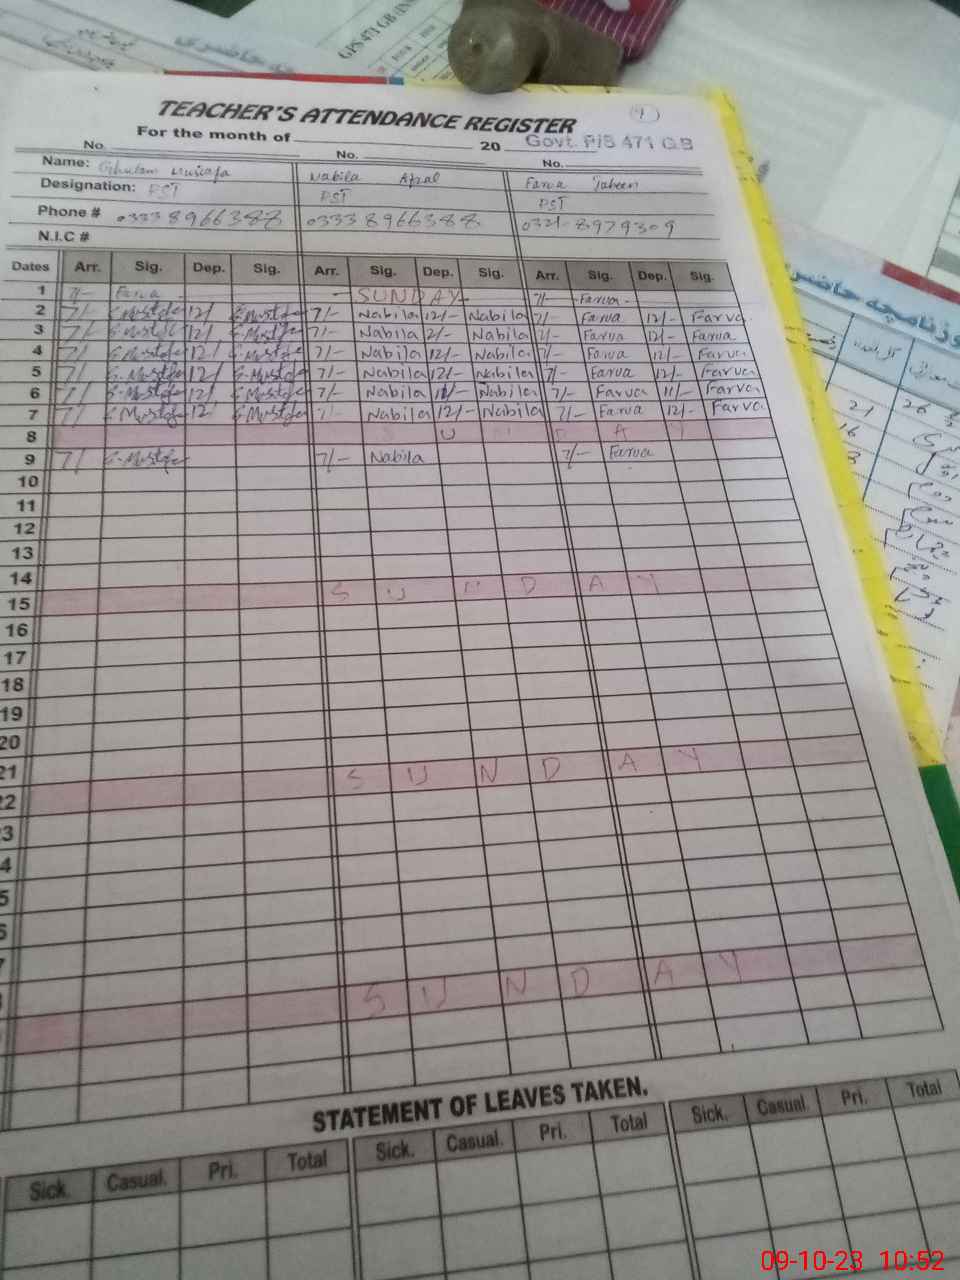 GPS 471 GB
TEACHER'S ATTENDANCE REGISTER
For the month of 20 Govt. P/S 471 GB
No. No. No.
Name: Ghulam Mustafa Nabila Afzal Farva Jabeen
Designation: PST PST PST
Phone # 0333 8966388 0333 8966388 0321-8979309
N.I.C #
Dates Arr. Sig. Dep. Sig. Arr. Sig. Dep. Sig. Arr. Sig. Dep. Sig.
1 7/- Farva SUNDAY 7/- Farva
2 7/ G.Mustafa 12/ G.Mustafa 7/- Nabila 12/- Nabila 7/- Farva 12/- Farva
3 7/ G.Mustafa 12/ G.Mustafa 7/- Nabila 2/- Nabila 7/- Farva 12/- Farva
4 7/ G.Mustafa 12/ G.Mustafa 7/- Nabila 12/- Nabila 7/- Farva 12/- Farva
5 7/ G.Mustafa 12/ G.Mustafa 7/- Nabila 12/- Nabila 7/- Farva 12/- Farva
6 7/ G.Mustafa 12/ G.Mustafa 7/- Nabila Nabila 7/- Farva 11/- Farva
7 7/ G.Mustafa 12/ G.Mustafa 7/- Nabila 12/- Nabila 7/- Farva 12/- Farva
8 S U N D A Y
9 7/ G.Mustafa 7/- Nabila 7/- Farva
10
11
12
13
14
15 S U N D A Y
16
17
18
19
20
21
22 S U N D A Y
3
4
5
S U N D A Y
STATEMENT OF LEAVES TAKEN.
Sick. Casual. Pri. Total Sick. Casual. Pri. Total Sick. Casual. Pri. Total
09-10-23 10:52